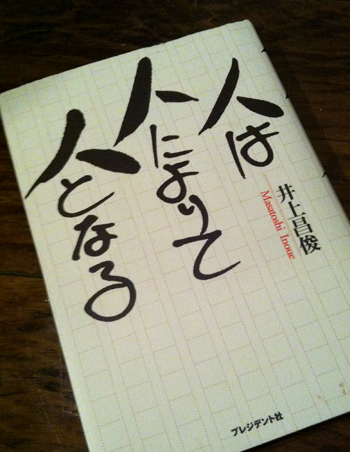 人は
人によりて
人となる
井上昌俊
Masatoshi Inoue
プレジデント社